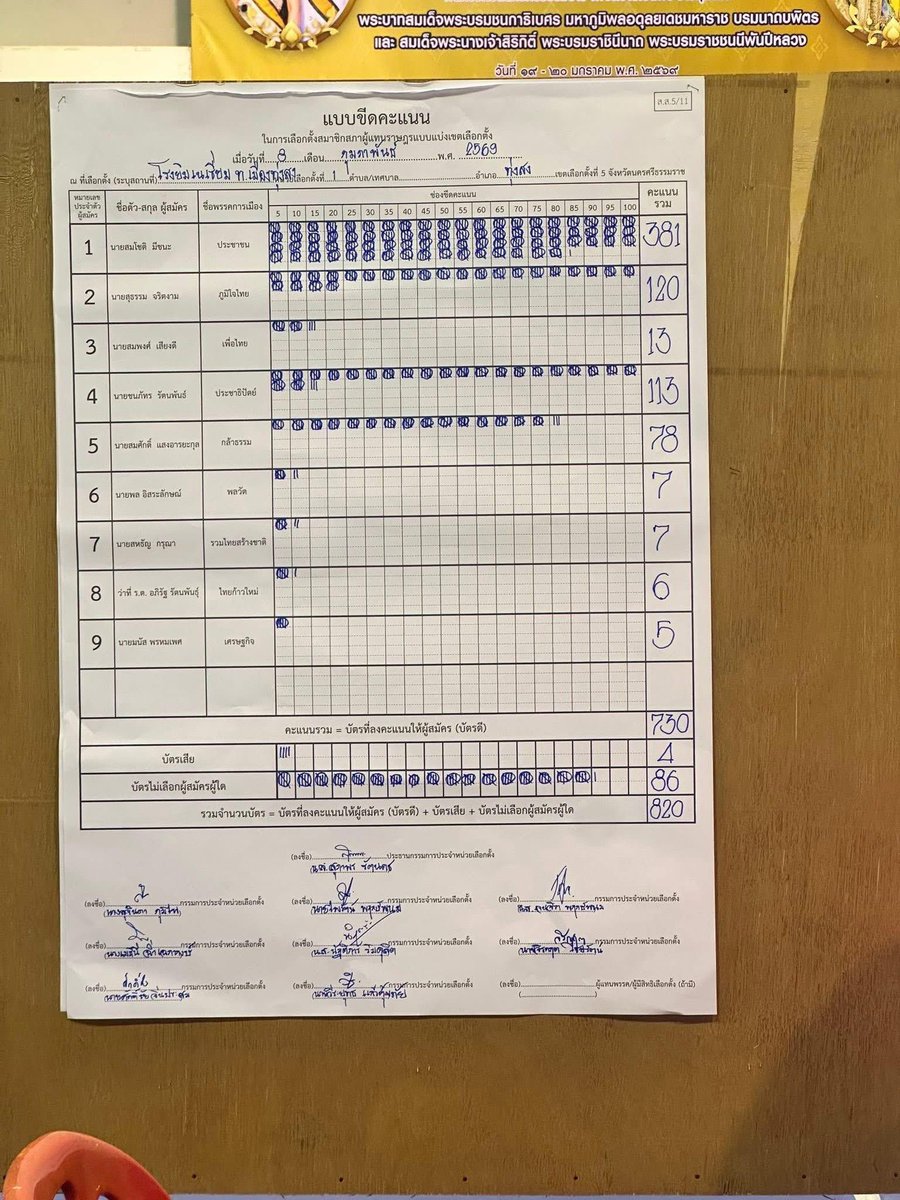 พระบาทสมเด็จพระบรมชนกาธิเบศร มหาภูมิพลอดุลยเดชมหาราช บรมนาถบพิตร
และ สมเด็จพระนางเจ้าสิริกิติ์ พระบรมราชินีนาถ พระบรมราชชนนีพันปีหลวง
วันที่ ๑๙ - ๒๐ มกราคม พ.ศ. ๒๕๖๙
ส.ส.5/11
แบบขีดคะแนน
ในการเลือกตั้งสมาชิกสภาผู้แทนราษฎรแบบแบ่งเขตเลือกตั้ง
เมื่อวันที่ 8 เดือน กุมภาพันธ์ พ.ศ. 2569
ณ ที่เลือกตั้ง (ระบุสถานที่) ที่ 1 ตำบล/เทศบาล อำเภอ ทุ่งสง เขตเลือกตั้งที่ 5 จังหวัดนครศรีธรรมราช
หมายเลขประจำตัวผู้สมัคร ชื่อตัว-สกุล ผู้สมัคร ชื่อพรรคการเมือง ช่องขีดคะแนน คะแนนรวม
5 10 15 20 25 30 35 40 45 50 55 60 65 70 75 80 85 90 95 100
1 นายสมโชติ มีชนะ ประชาชน 381
2 นายสุธรรม จริตงาม ภูมิใจไทย 120
3 นายสมพงศ์ เสียงดี เพื่อไทย 13
4 นายชนภัทร รัตนพันธ์ ประชาธิปัตย์ 113
5 นายสมศักดิ์ แสงอารยะกุล กล้าธรรม 78
6 นายพล อิสระลักษณ์ พลวัต 7
7 นายสหธัญ กรุณา รวมไทยสร้างชาติ 7
8 ว่าที่ ร.ต. อภิรัฐ รัตนพันธุ์ ไทยก้าวใหม่ 6
9 นายมนัส พรหมเพศ เศรษฐกิจ 5
คะแนนรวม = บัตรที่ลงคะแนนให้ผู้สมัคร (บัตรดี) 730
บัตรเสีย 4
บัตรไม่เลือกผู้สมัครผู้ใด 86
รวมจำนวนบัตร = บัตรที่ลงคะแนนให้ผู้สมัคร (บัตรดี) + บัตรเสีย + บัตรไม่เลือกผู้สมัครผู้ใด 820
(ลงชื่อ) ประธานกรรมการประจำหน่วยเลือกตั้ง
(ลงชื่อ) กรรมการประจำหน่วยเลือกตั้ง (ลงชื่อ) กรรมการประจำหน่วยเลือกตั้ง (ลงชื่อ) กรรมการประจำหน่วยเลือกตั้ง
(ลงชื่อ) กรรมการประจำหน่วยเลือกตั้ง (ลงชื่อ) กรรมการประจำหน่วยเลือกตั้ง (ลงชื่อ) กรรมการประจำหน่วยเลือกตั้ง
(ลงชื่อ) กรรมการประจำหน่วยเลือกตั้ง (ลงชื่อ) กรรมการประจำหน่วยเลือกตั้ง (ลงชื่อ) ผู้แทนพรรค/ผู้มีสิทธิเลือกตั้ง (ถ้ามี)